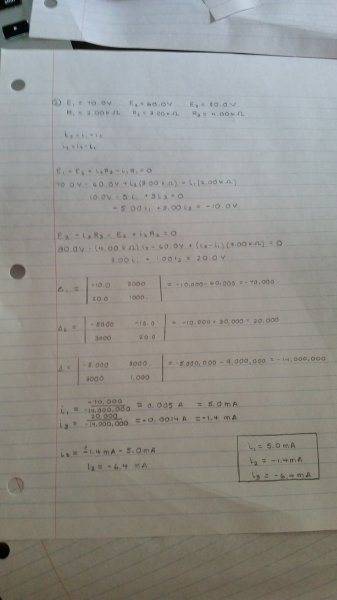 E₁ = 70.0V E₂ = 60.0V E₃ = 80.0V
R₁ = 2.00 kΩ R₂ = 3.00 kΩ R₃ = 4.00 kΩ
E₁ - E₂ + i₂R₂ - i₁R₁ = 0
70.0V - 60.0V + i₂(3.00 kΩ) = i₁(2.00 kΩ)
= -5.00 i₁ + 3.00 i₃ = -10.0V
E₃ - i₃R₃ - E₂ + i₂R₂ = 0
80.0V - (4.00 kΩ) i₃ - 60.0V + (i₃ - i₁)(3.00 kΩ) = 0
3.00 i₁ + 1.00 i₃ = 20.0V
Δ₁ = | -10.0 3000 | = -10,000 - 60,000 = -70,000
20.0 1000
Δ₂ = | -5000 -10.0 | = -10,000 + 30,000 = 20,000
3000 20.0
Δ = | -5,000 3000 | = -5,000,000 - 9,000,000 = -14,000,000
3000 1,000
i₁ = -70,000 / -14,000,000 = 0.005 A = 5.0 mA
i₃ = 20,000 / -14,000,000 = -0.0014 A = -1.4 mA
-1.4 mA - 5.0 mA
= -6.4 mA
i₁ = 5.0 mA
= -1.4 mA
= -6.4 mA